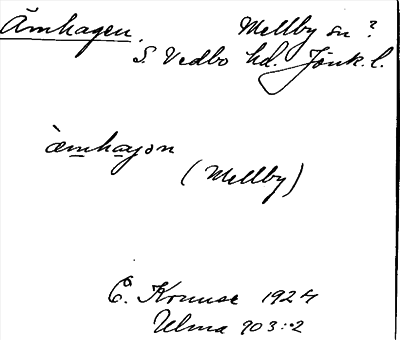 Ämhagen. Mellby sn ?
S. Vedbo hd. Jönk. l.
`æmhagən
(Mellby)
E. Kruuse 1924
Ulma 903:2